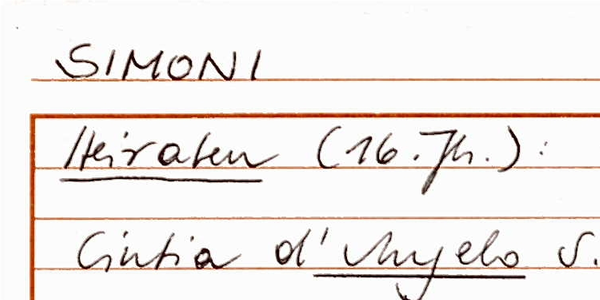 SIMONI
Heiraten (16. Jh.):
Cintia d'Angelo S.